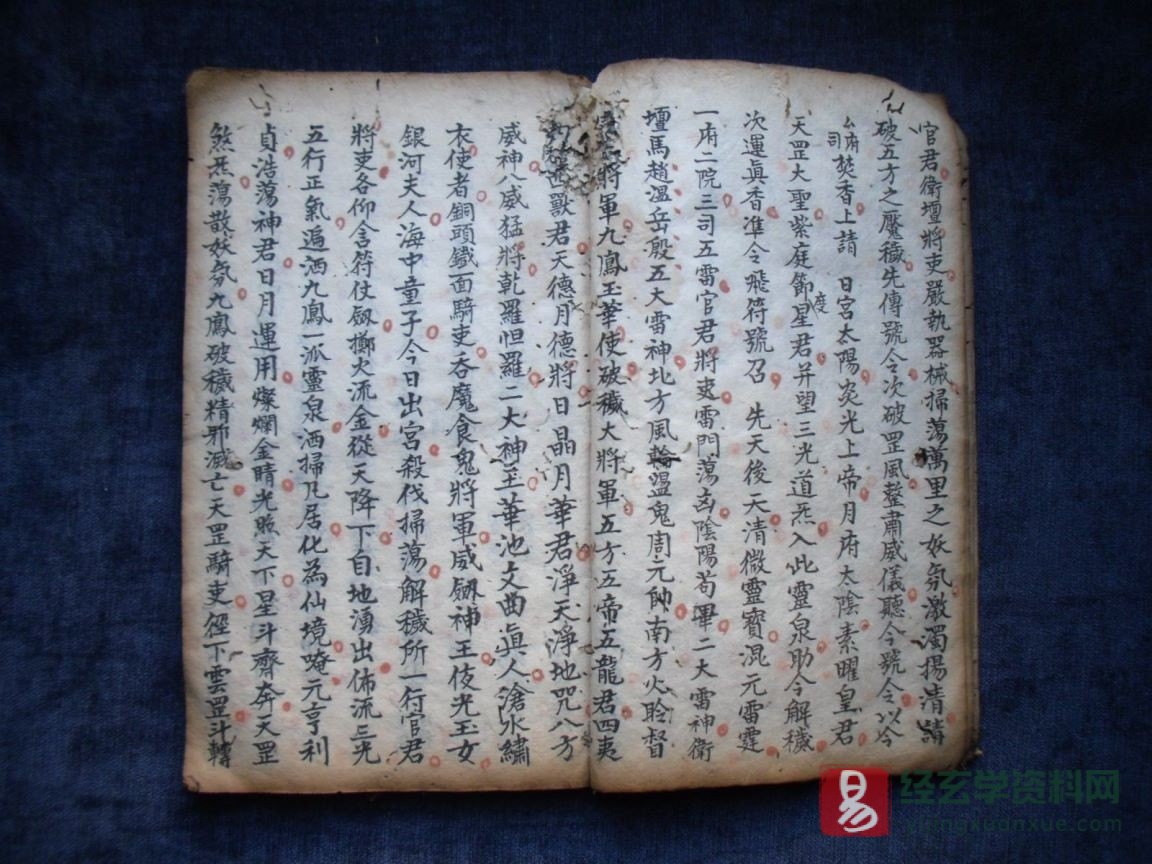 官君衛壇將吏嚴執器械掃蕩萬里之妖氛激濁揚清請
破五方之魔穢先傳號令次破罡風整肅威儀聽今號令以今
厶府司焚香上請 日宮太陽炎光上帝月府太陰素曜皇君
天罡大聖紫庭節度星君并望三光道炁入此靈泉助今解穢
次運眞香準令飛符號召 先天後天清微靈寶混元雷霆
一府二院三司五雷官君將吏雷門蕩凶陰陽苟畢二大雷神衛
壇馬趙溫岳殷五大雷神北方風輪溫鬼周元帥南方火聆督
將軍九鳳玉華使破穢大將軍五方五帝五龍君四夷
獸君天德月德將日晶月華君淨天淨地咒八方
威神八威猛將乾羅怛羅二大神玉華池文曲眞人滄水繡
衣使者銅頭鐵面騎吏吞魔食鬼將軍威劔神王伎光玉女
銀河夫人海中童子今日出宮殺伐掃蕩解穢所一行官君
將吏各仰含符仗劔擲火流金從天降下自地湧出佈流三光
五行正氣遍洒九鳳一派靈泉洒掃凡居化為仙境唵元亨利
貞浩蕩神君日月運用燦爛金晴光照天下星斗齊奔天罡
煞炁蕩散妖氛九鳳破穢精邪滅亡天罡騎吏徑下雲罡斗轉
易
经玄学资料网
yijingxuanxue.com